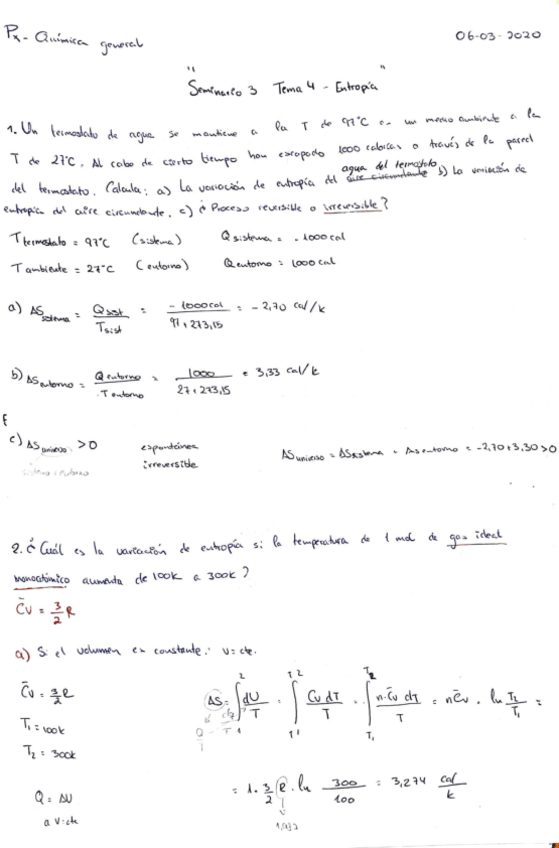 Px - Química general 06-03-2020
" Seminario 3 Tema 4 - Entropía "
1. Un termostato de agua se mantiene a la T de 97°C en un medio ambiente a la
T de 27°C. Al cabo de cierto tiempo han escapado 1000 calorías a través de la pared
del termostato. Calcula: a) La variación de entropía del aire circundante agua del termostato b) La variación de
entropía del aire circundante. c) ¿Proceso reversible o irreversible?
T termostato = 97°C (sistema) Q sistema = -1000 cal
T ambiente = 27°C (entorno) Q entorno = 1000 cal
a) ΔS sistema = Q sist / T sist = -1000 cal / 97+273,15 = -2,70 cal/k
b) ΔS entorno = Q entorno / T entorno = 1000 / 27+273,15 = 3,33 cal/k
E
c) ΔS universo > 0 espontánea ΔS universo = ΔS sistema + ΔS entorno = -2,70+3,30 > 0
sistema + entorno irreversible
2. ¿Cuál es la variación de entropía si la temperatura de 1 mol de gas ideal
monoatómico aumenta de 100k a 300k?
C̄v = 3/2 R
a) Si el volumen es constante. V=cte.
C̄v = 3/2 R ΔS = ∫₁² dU/T = ∫T1 T2 Cv dT/T = ∫T₁ T₂ n·C̄v dT/T = n C̄v · ln T₂/T₁ =
T₁ = 100k
T₂ = 300k
Q = ΔU = 1 · 3/2 R · ln 300/100 = 3,274 cal/k
a V=cte